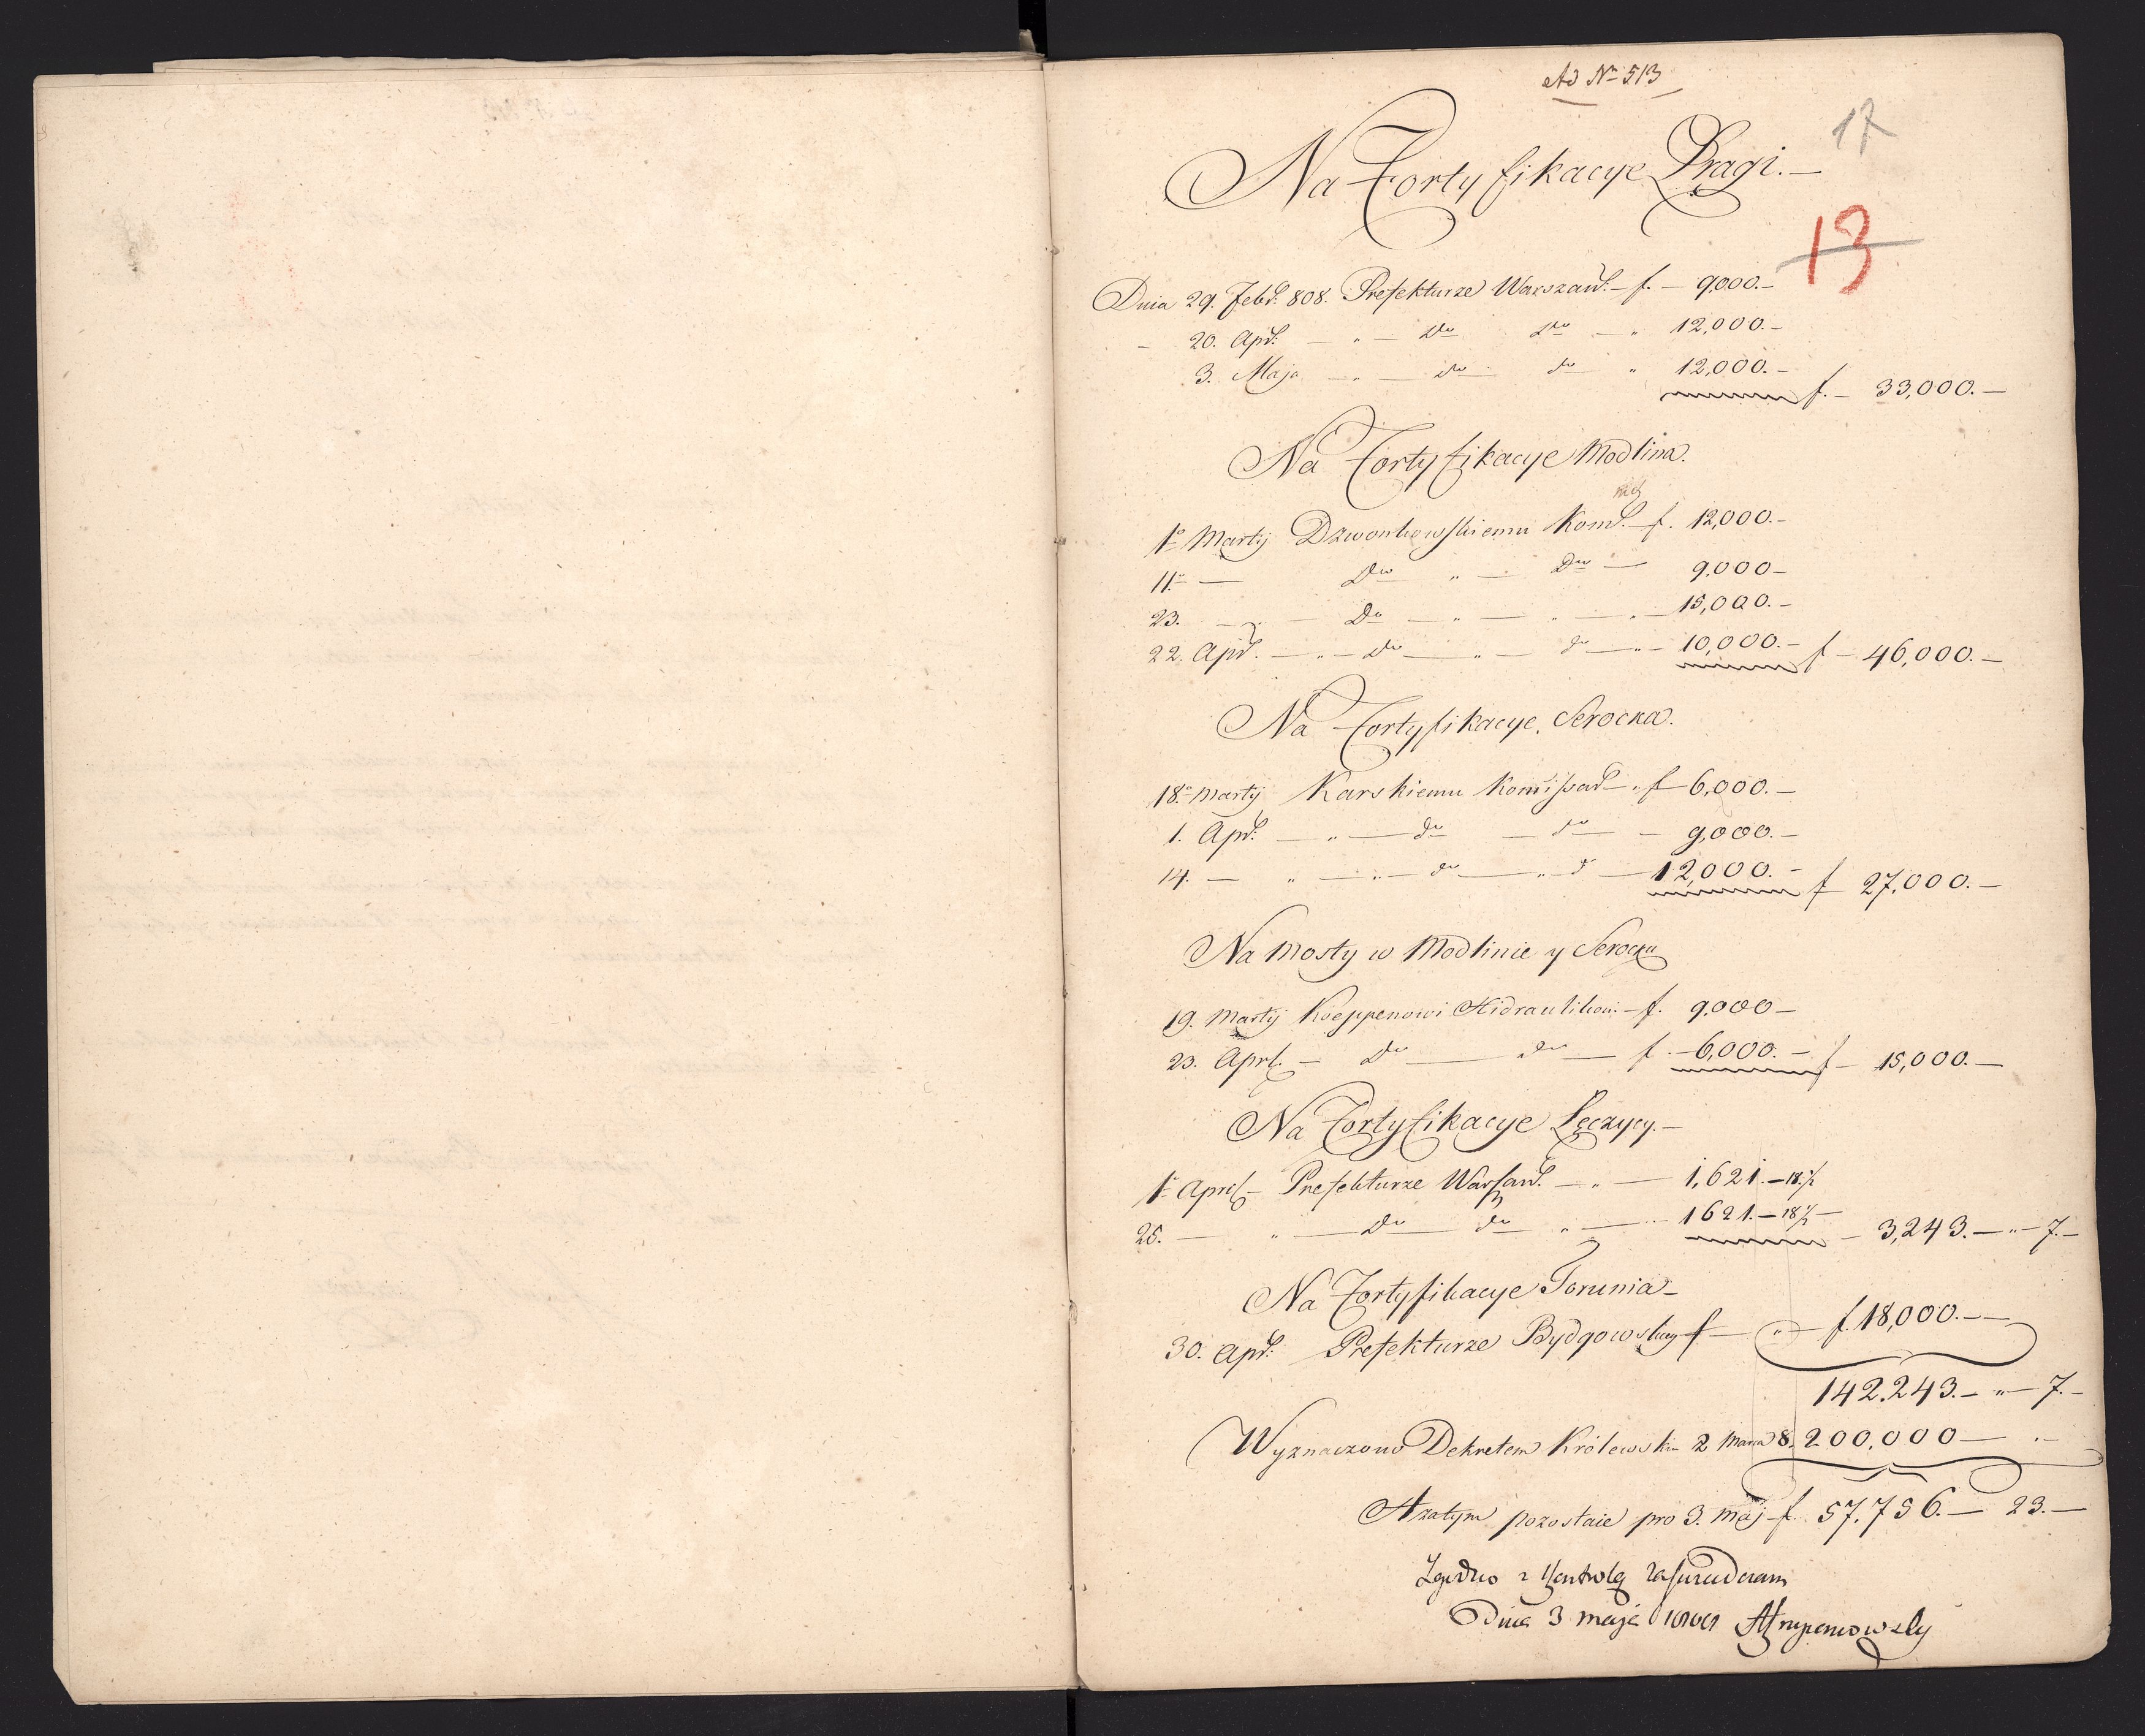 Ad No 513
17
Na Fortyfikacye Pragi.—
13
Dnia 29. Febr. 808. Prefekturze Warszaws. — f. — 9000.—
— 20. Apr. — „ — do do — „ 12,000.—
3. Maja — „ — do do „ 12,000.—
f. — 33,000.—
Na Fortyfikacye Modlina.
1o Martij Dzwonkowskiemu Kom. — f. 12,000.—
11o — Do „ — Do — 9,000—
23. — „ — Do — „ — „ — „ — 15,000.—
22. Apr. — „ — do — „ — do — „ — 10,000.— f — 46,000.—
Na Fortyfikacye Serocka.
18o Martij Karskiemu Komissar — „ f 6,000.—
1. Apr. — „ — do — do — 9,000.—
14. — „ — „ — do — „ — d — 12,000.— f 27,000.—
Na Mosty w Modlinie y Serocku
19. Martij Koeppenowi Hidraulikowi — f. 9,000—
23. Aprl. — do — do — f. — 6,000.— f — 15,000.—
Na Fortyfikacye Łęczycy.—
1o April — Prefekturze Warsaws. — „ — 1,621.— 18½
25. — „ — do — do „ — 1621.— 18½ — 3,243.— „ — 7.—
Na Fortyfikacye Torunia —
30. Apr. Prefekturze Bydgowskiey f — „ — f. 18,000.——
142.243.— „ — 7.—
Wyznaczono Dekretem Królewskim 2 Marca 8. 200,000—
A zatym pozostaie pro 3. Maj f. 57.756.— 23.—
Zgodno z Kontrolą
Dnia 3 maja 1808